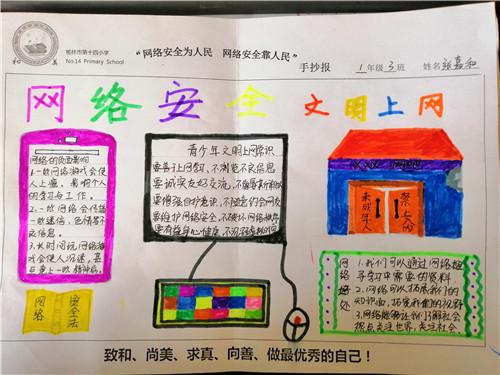 榆林市第十四小学
No.14 Primary School
和 美
“网络安全为人民 网络安全靠人民”
手抄报
1年级3班
姓名张嘉和
网络安全 文明上网
网络的负面影响
1.一些网络游戏会使
人上瘾,影响个人
的学习与工作。
2.一些网络会传播
一些暴力、色情等不
良信息。
3.长时间玩网络游
戏会使人沉迷,甚
网络
安全法
青少年文明上网常识
要善于上网学习,不浏览不良信息
要诚实友好交流,不侮辱欺诈他人
要增强自护意识,不随意约会网友
要维护网络安全,不破坏网络秩序
要有益身心健康,不沉溺虚拟时空
未成年人
禁止入内
网络益处
1.我们可以通过网络搜
寻学习中需要的资料
2.网络可以拓展我们的
知识面,拓宽我们的视野
3.网络能够让我们了解社会
热点关注世界,关注社会
致和、尚美、求真、向善、做最优秀的自己!